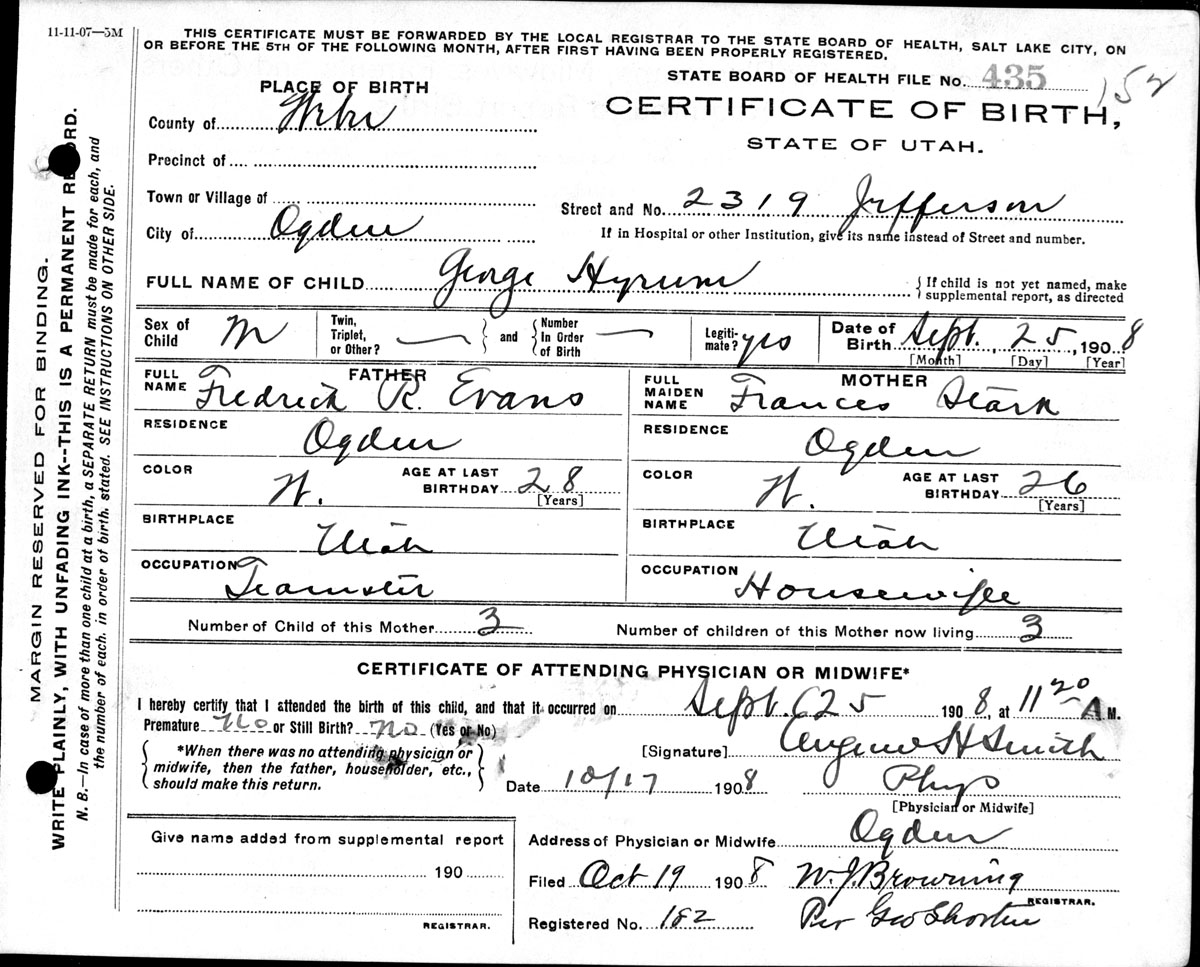 11-11-07—5M
THIS CERTIFICATE MUST BE FORWARDED BY THE LOCAL REGISTRAR TO THE STATE BOARD OF HEALTH, SALT LAKE CITY, ON
OR BEFORE THE 5TH OF THE FOLLOWING MONTH, AFTER FIRST HAVING BEEN PROPERLY REGISTERED.
STATE BOARD OF HEALTH FILE No. 435
152
PLACE OF BIRTH
CERTIFICATE OF BIRTH,
STATE OF UTAH.
County of Weber
Precinct of
Town or Village of
City of Ogden
Street and No. 2319 Jefferson
If in Hospital or other Institution, give its name instead of Street and number.
FULL NAME OF CHILD George Hyrum
{ If child is not yet named, make
supplemental report, as directed
Sex of Child M
Twin, Triplet, or Other? — } and { Number In Order of Birth —
Legiti-mate? yes
Date of Birth Sept. 25, 1908
[Month] [Day] [Year]
FATHER
FULL NAME Fredrick R. Evans
RESIDENCE Ogden
COLOR W.
AGE AT LAST BIRTHDAY 28
[Years]
BIRTHPLACE Utah
OCCUPATION Teamster
MOTHER
FULL MAIDEN NAME Frances Stark
RESIDENCE Ogden
COLOR W.
AGE AT LAST BIRTHDAY 26
[Years]
BIRTHPLACE Utah
OCCUPATION Housewife
Number of Child of this Mother 3
Number of children of this Mother now living 3
CERTIFICATE OF ATTENDING PHYSICIAN OR MIDWIFE*
I hereby certify that I attended the birth of this child, and that it occurred on Sept. 25 1908, at 11 20 A M.
Premature No or Still Birth? No (Yes or No)
{ *When there was no attending physician or
midwife, then the father, householder, etc.,
should make this return. }
[Signature] Eugene H Smith
Date 10/17 1908 Phys
[Physician or Midwife]
Give name added from supplemental report
190
REGISTRAR.
Address of Physician or Midwife Ogden
Filed Oct 19 1908 W. J. Browning
REGISTRAR.
Registered No. 182 Per Geo Shorten
MARGIN RESERVED FOR BINDING.
WRITE PLAINLY, WITH UNFADING INK--THIS IS A PERMANENT RECORD.
N. B.—In case of more than one child at a birth, a SEPARATE RETURN must be made for each, and
the number of each, in order of birth, stated. SEE INSTRUCTIONS ON OTHER SIDE.